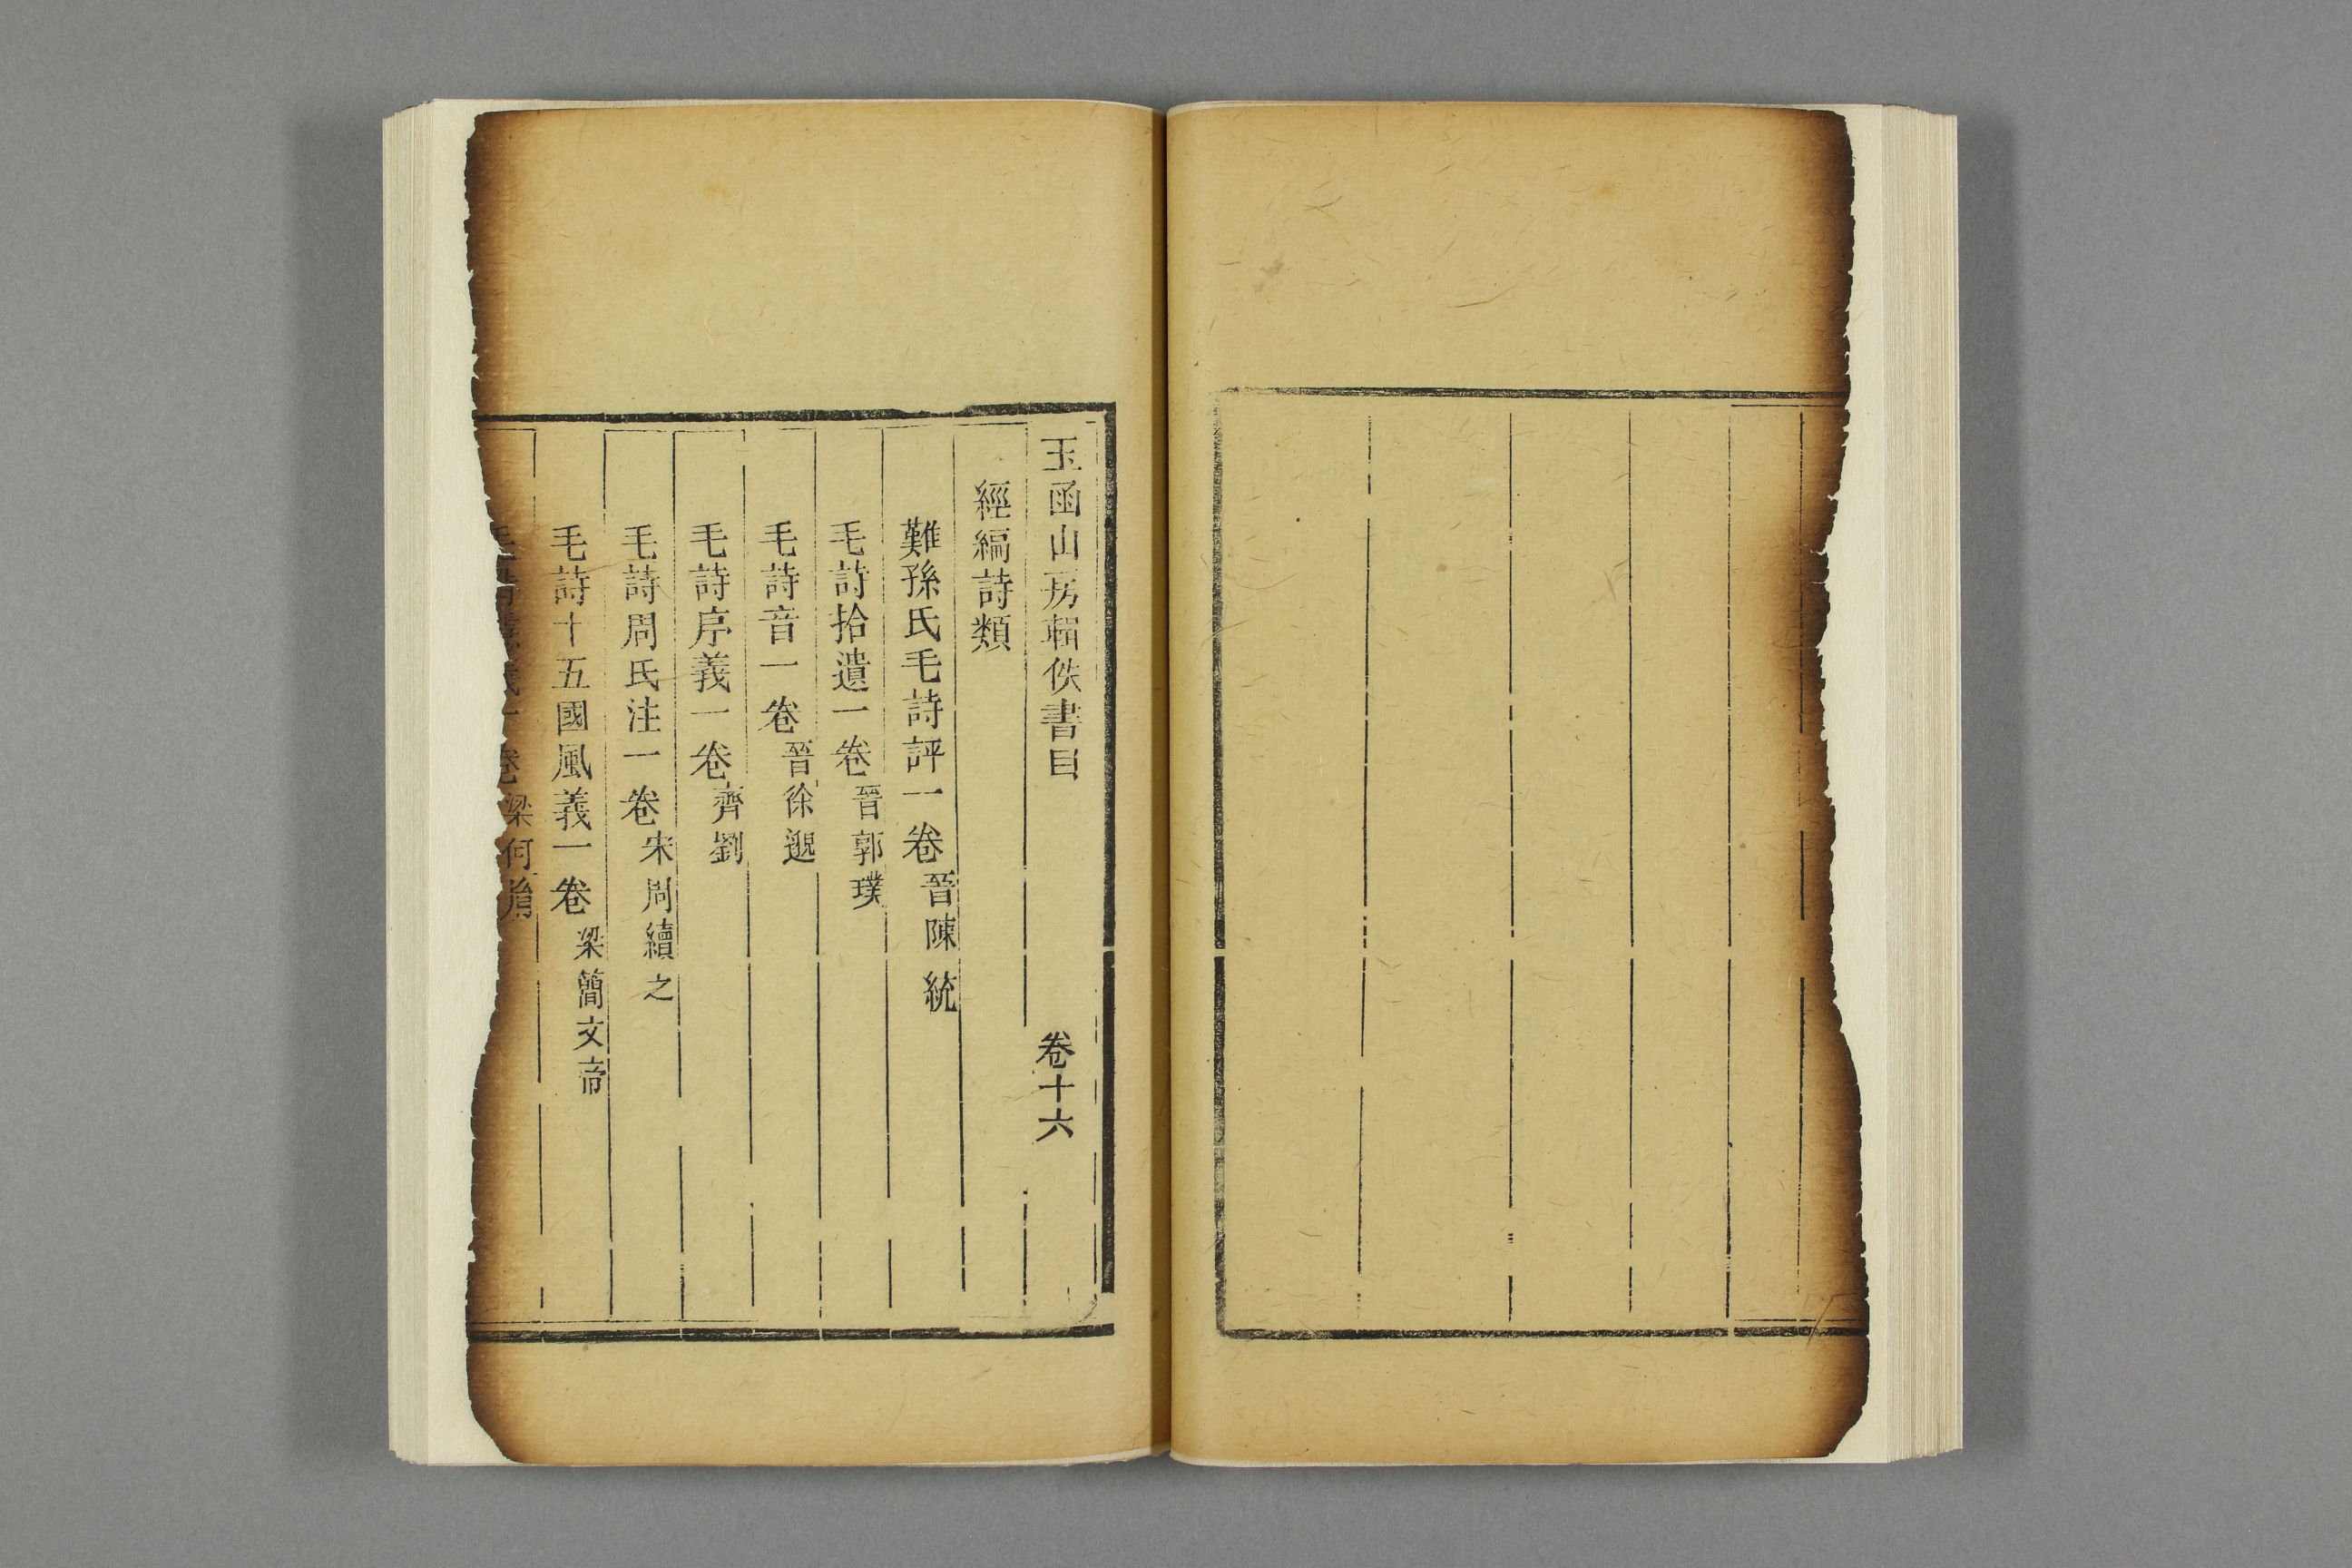 玉函山房輯佚書目 卷十六
經編詩類
難孫氏毛詩評一卷 晉陳統
毛詩拾遺一卷 晉郭璞
毛詩音一卷 晉徐邈
毛詩序義一卷 齊劉
毛詩周氏注一卷 宋周續之
毛詩十五國風義一卷 梁簡文帝
毛詩義一卷 梁何胤